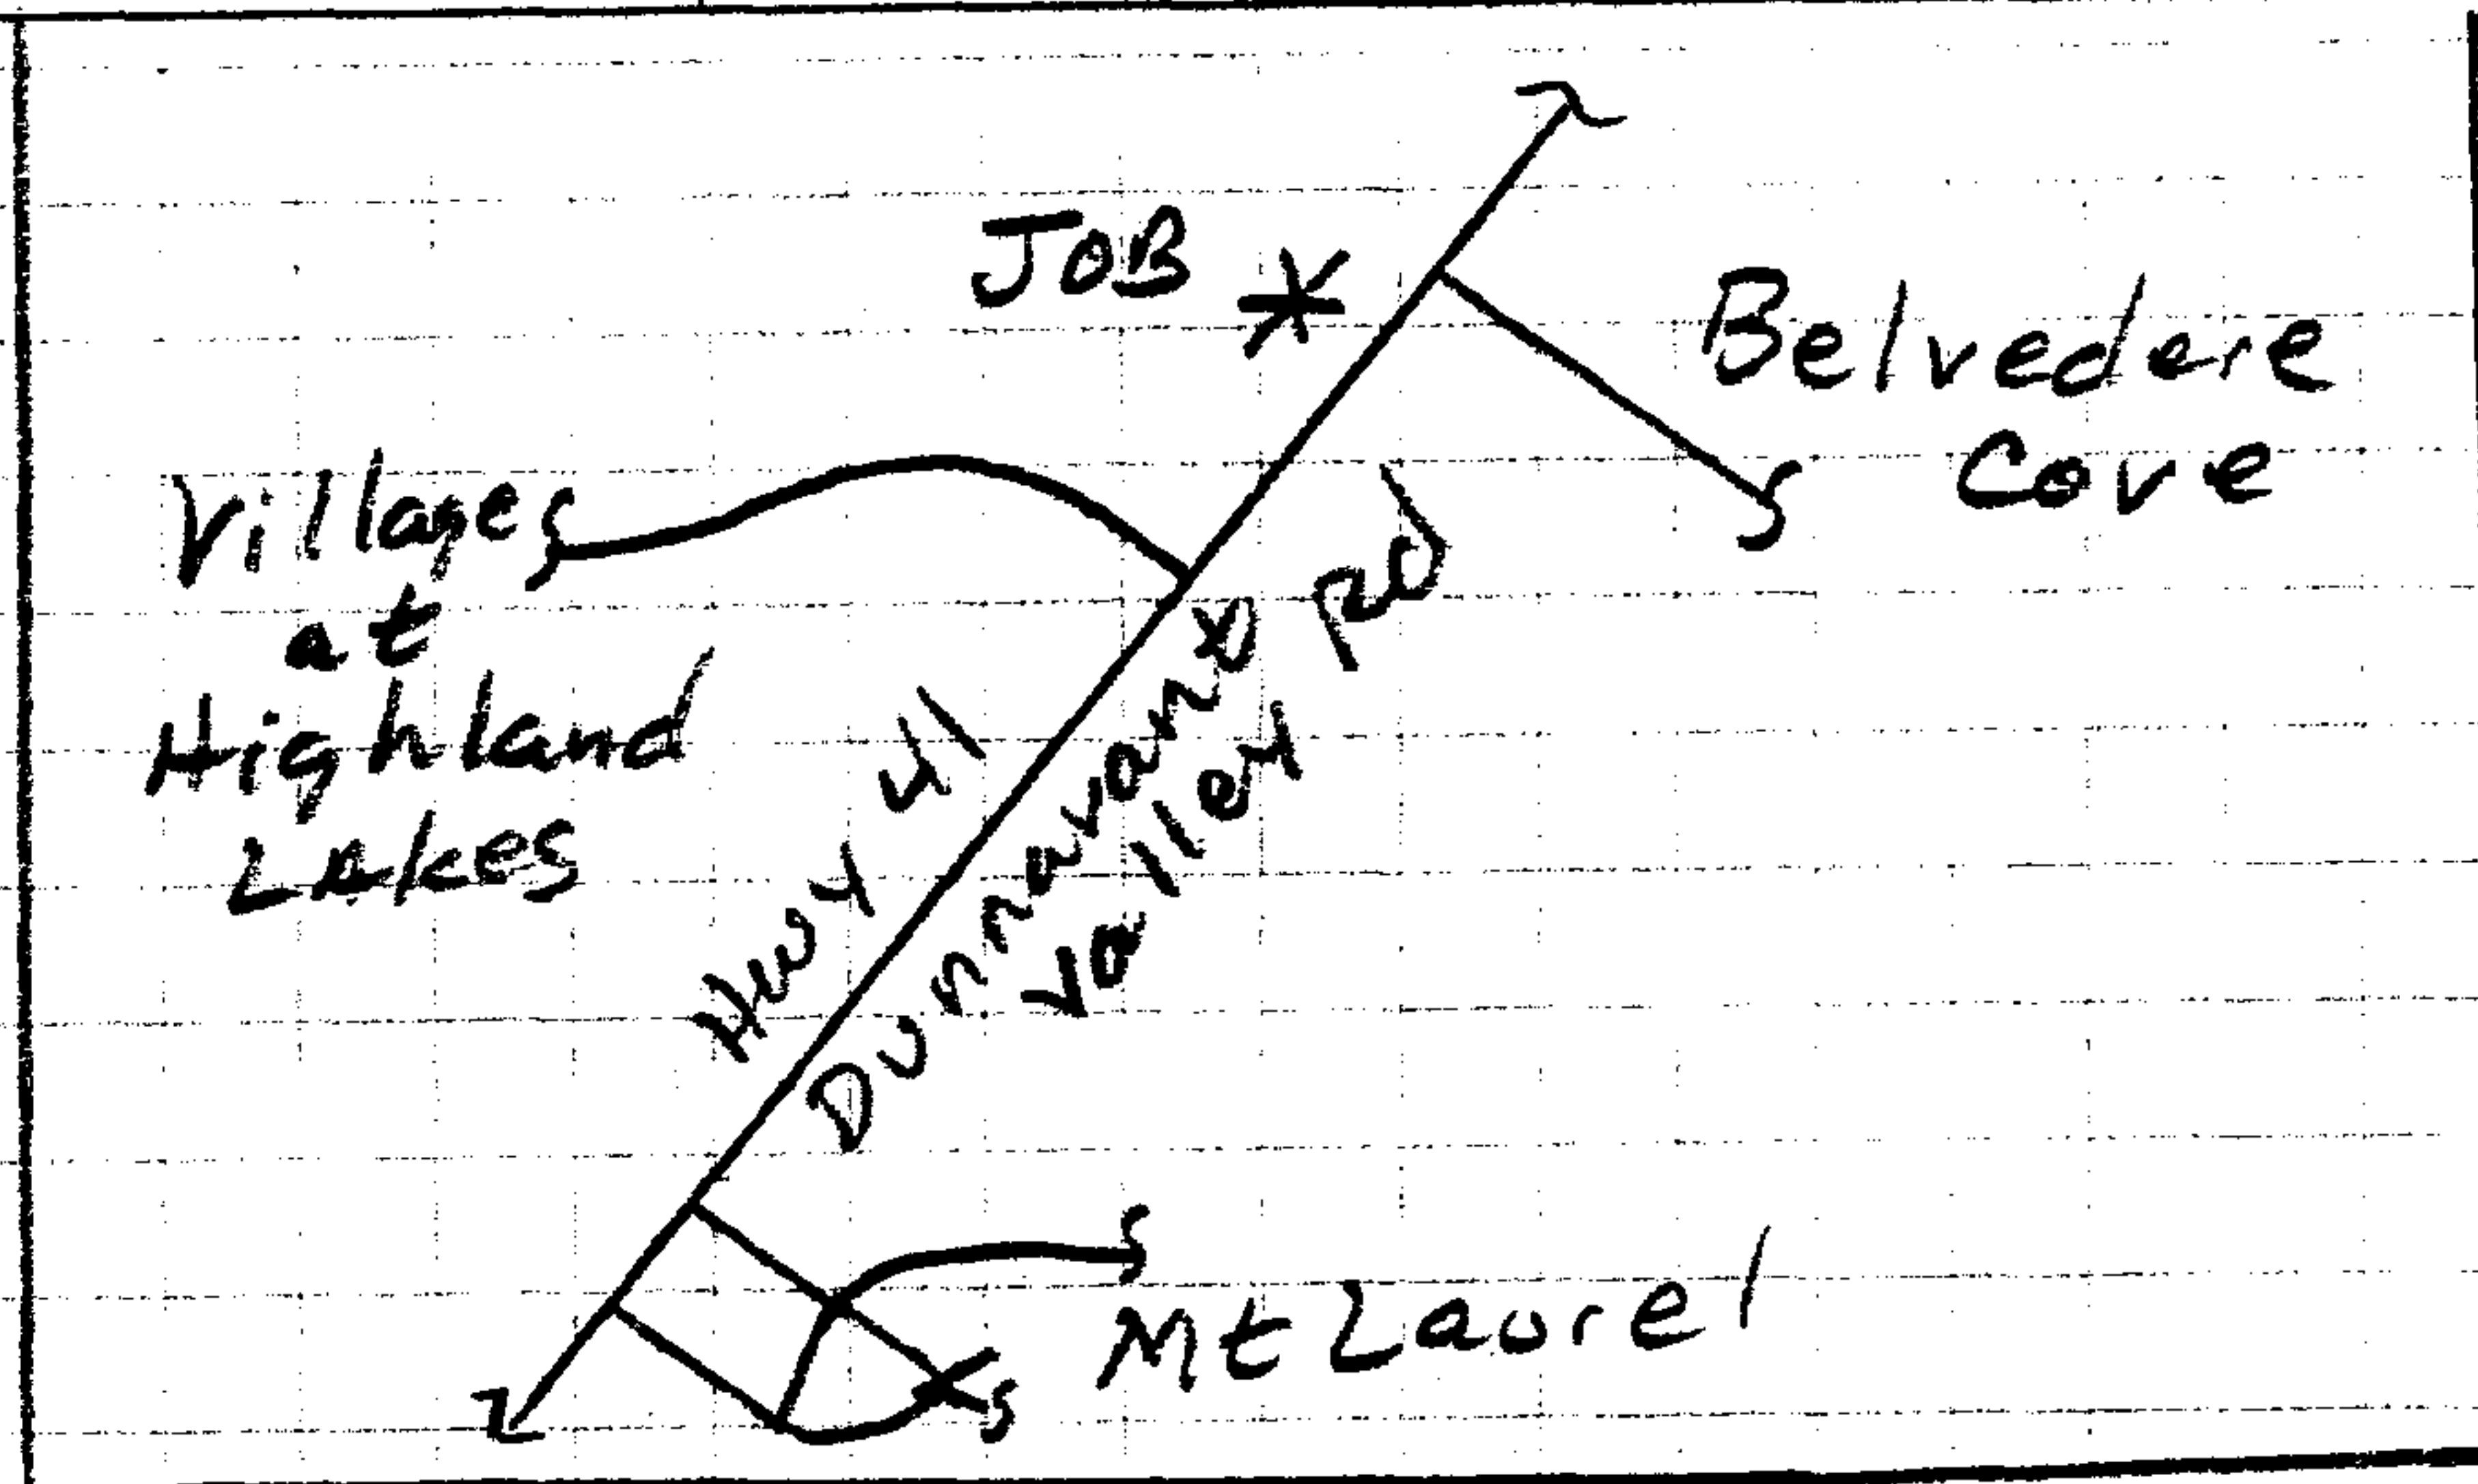 JOB *
Belvedere
Cove
Villages
at
Highland
Lakes
Hwy 41
Dunnavant
Valley Rd
Mt Laurel